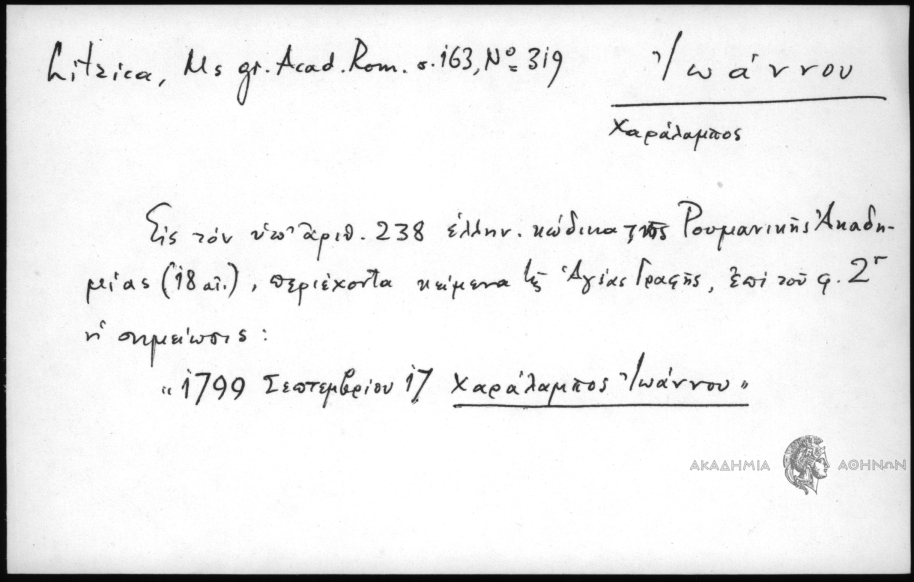 Litzica, Ms gr. Acad. Rom. σ. 163, Nº 319
Ἰωάννου
Χαράλαμπος
Εἰς τόν ὑπ' ἀριθ. 238 ἑλλην. κώδικα τῆς Ρουμανικῆς Ἀκαδη-
μίας (18 αἰ.), περιέχοντα κείμενα τῆς Ἁγίας Γραφῆς, ἐπί τοῦ φ. 2r
ἡ σημείωσις:
"1799 Σεπτεμβρίου 17 Χαράλαμπος Ἰωάννου"
ΑΚΑΔΗΜΙΑ ΑΘΗΝΩΝ